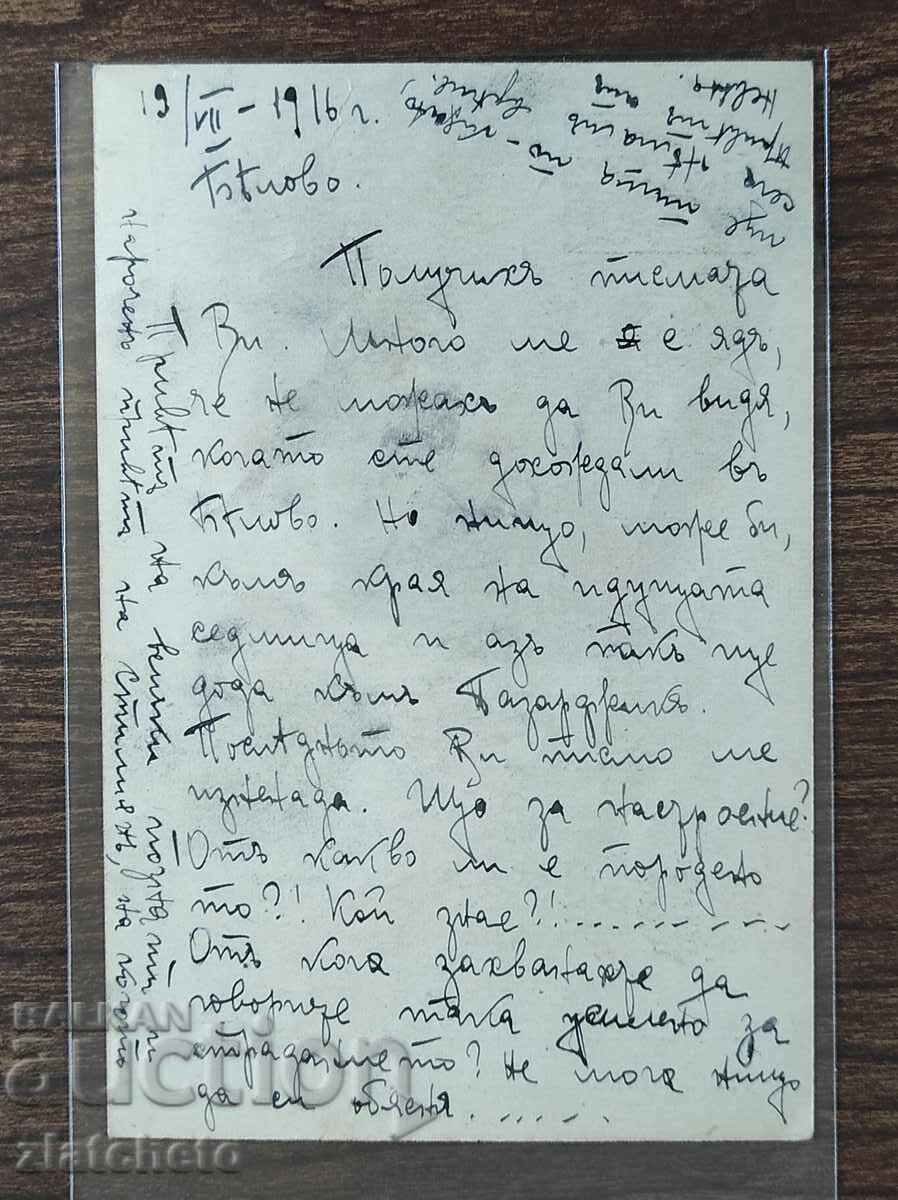 19/VII - 1916 г.
Бѣлово.
Получихъ писмата
Ви. Много ме е ядъ,
че не можахъ да Ви видя,
когато сте дохождали въ
Бѣлово. Но нищо, може би,
къмъ края на идущата
седмица и азъ пакъ ще
дода къмъ Пазарджикъ.
Последньото Ви писмо ме
изненада. Що за настроение?
Отъ какво ли е породено
то?! Кой знае?!
Отъ кога захванахте да
говорите така усилено за
страданието? Не мога нищо
да си обясня. . . . . .
Привѣтъ на всички познати и
нарочень привѣтъ на Стилиянъ, на когото
ще
пиша по-
сега
Привѣтъ
BALKAN
auction
zlatcheto